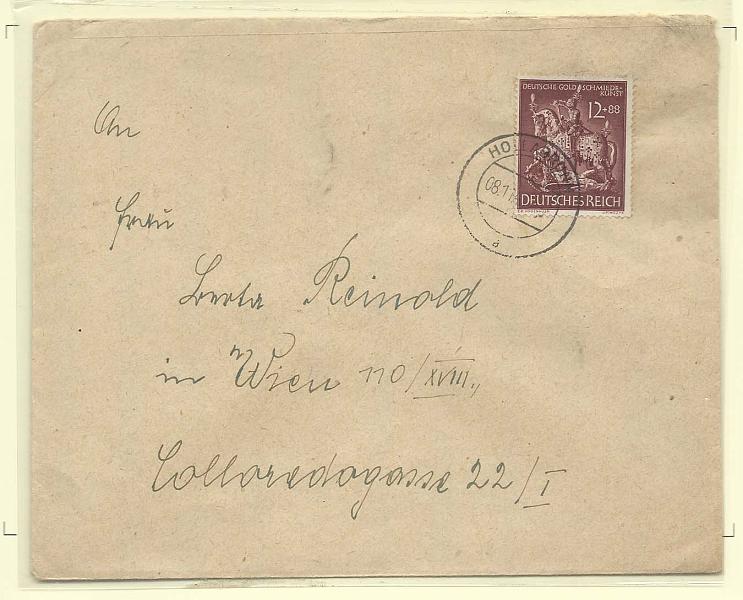 DEUTSCHE GOLDSCHMIEDE-
KUNST
12+88
DEUTSCHES REICH
08.1
a
An
Frau
Berta Reinold
in Wien 110/XVIII.,
Colloredogasse 22/I